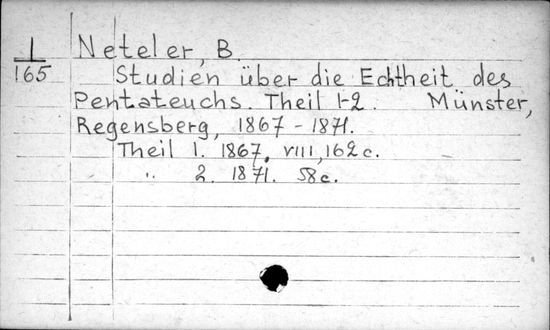 Neteler, B.
I
165
Studien über die Echtheit des
Pentateuchs. Theil 1-2. Münster,
Regensberg, 1867 - 1871.
Theil 1. 1867. VIII, 162 c.
" 2. 1871. 58 c.